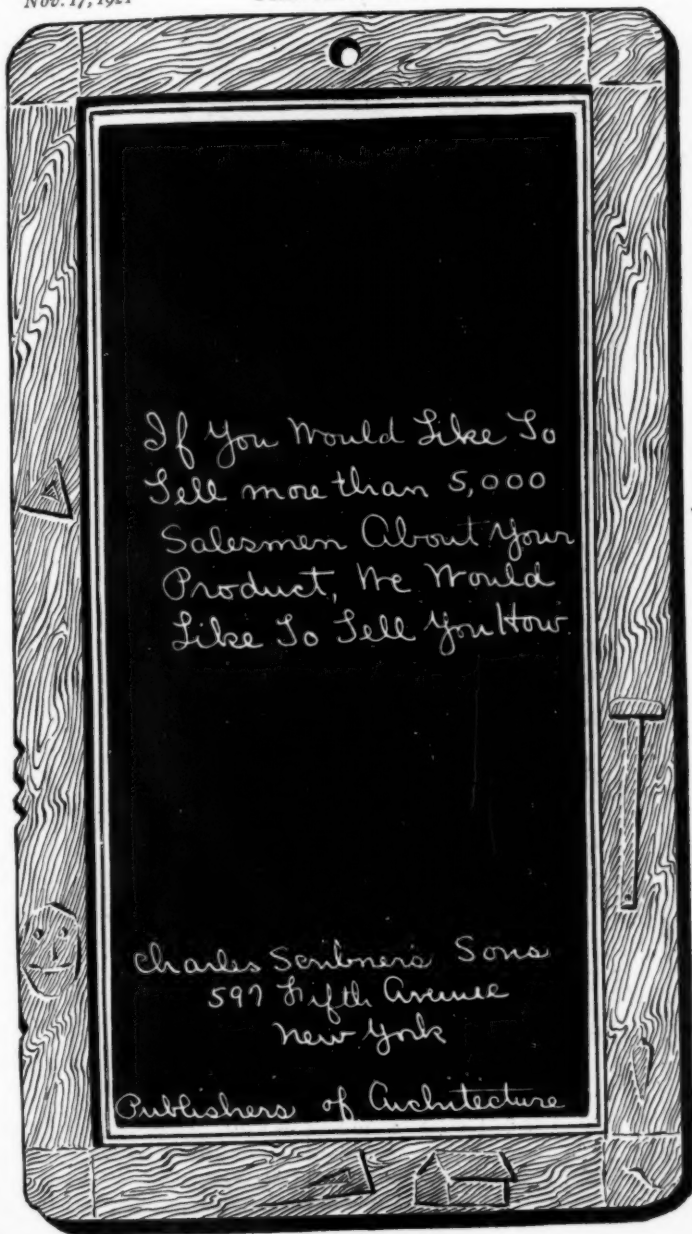 Nov. 17, 1921
If You Would Like To
Tell more than 5,000
Salesmen About Your
Product, We Would
Like To Tell You How
Charles Scribner's Sons
597 Fifth Avenue
New York
Publishers of Architecture